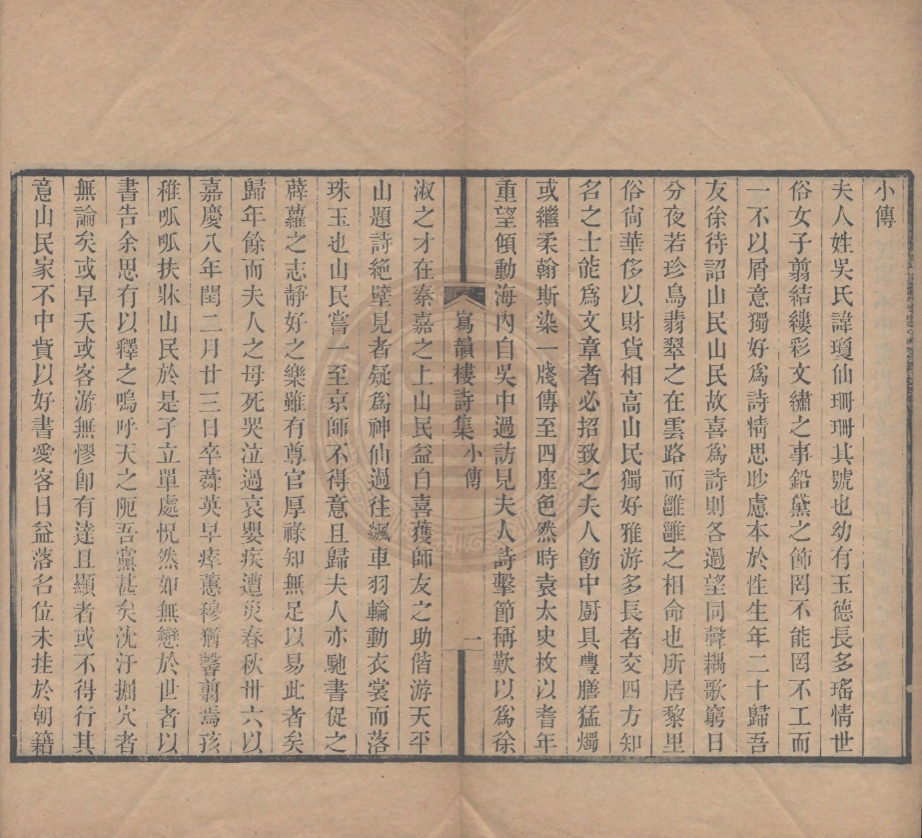 小傳
夫人姓吳氏諱瓊仙珊珊其號也幼有玉德長多瑤情世
俗女子翦結縷彩文繡之事鉛黛之飾罔不能罔不工而
一不以屑意獨好爲詩情思眇慮本於性生年二十歸吾
友徐待詔山民山民故喜爲詩則各過望同聲耦歌窮日
分夜若珍鳥翡翠之在雲路而雝雝之相命也所居黎里
俗尙華侈以財貨相高山民獨好雅游多長者交四方知
名之士能爲文章者必招致之夫人飭中厨具豐膳猛燭
或繼柔翰斯染一牋傳至四座色然時袁太史枚以耆年
重望傾動海內自吳中過訪見夫人詩擊節稱歎以爲徐
寫韻樓詩集 小傳 一
淑之才在秦嘉之上山民益自喜獲師友之助偕游天平
山題詩絶壁見者疑爲神仙過往飆車羽輪動衣裳而落
珠玉也山民嘗一至京師不得意且歸夫人亦馳書促之
薜蘿之志靜好之樂雖有尊官厚祿知無足以易此者矣
歸年餘而夫人之母死哭泣過哀嬰疾遭災春秋卅六以
嘉慶八年閏二月廿三日卒蕣英早瘁蕙穆猶馨翦焉孩
稚呱呱扶牀山民於是孑立單處怳然如無戀於世者以
書告余思有以釋之嗚呼天之阨吾黨甚矣沈汙掘穴者
無論矣或早夭或客游無憀卽有達且顯者或不得行其
意山民家不中貲以好書愛客日益落名位未挂於朝籍